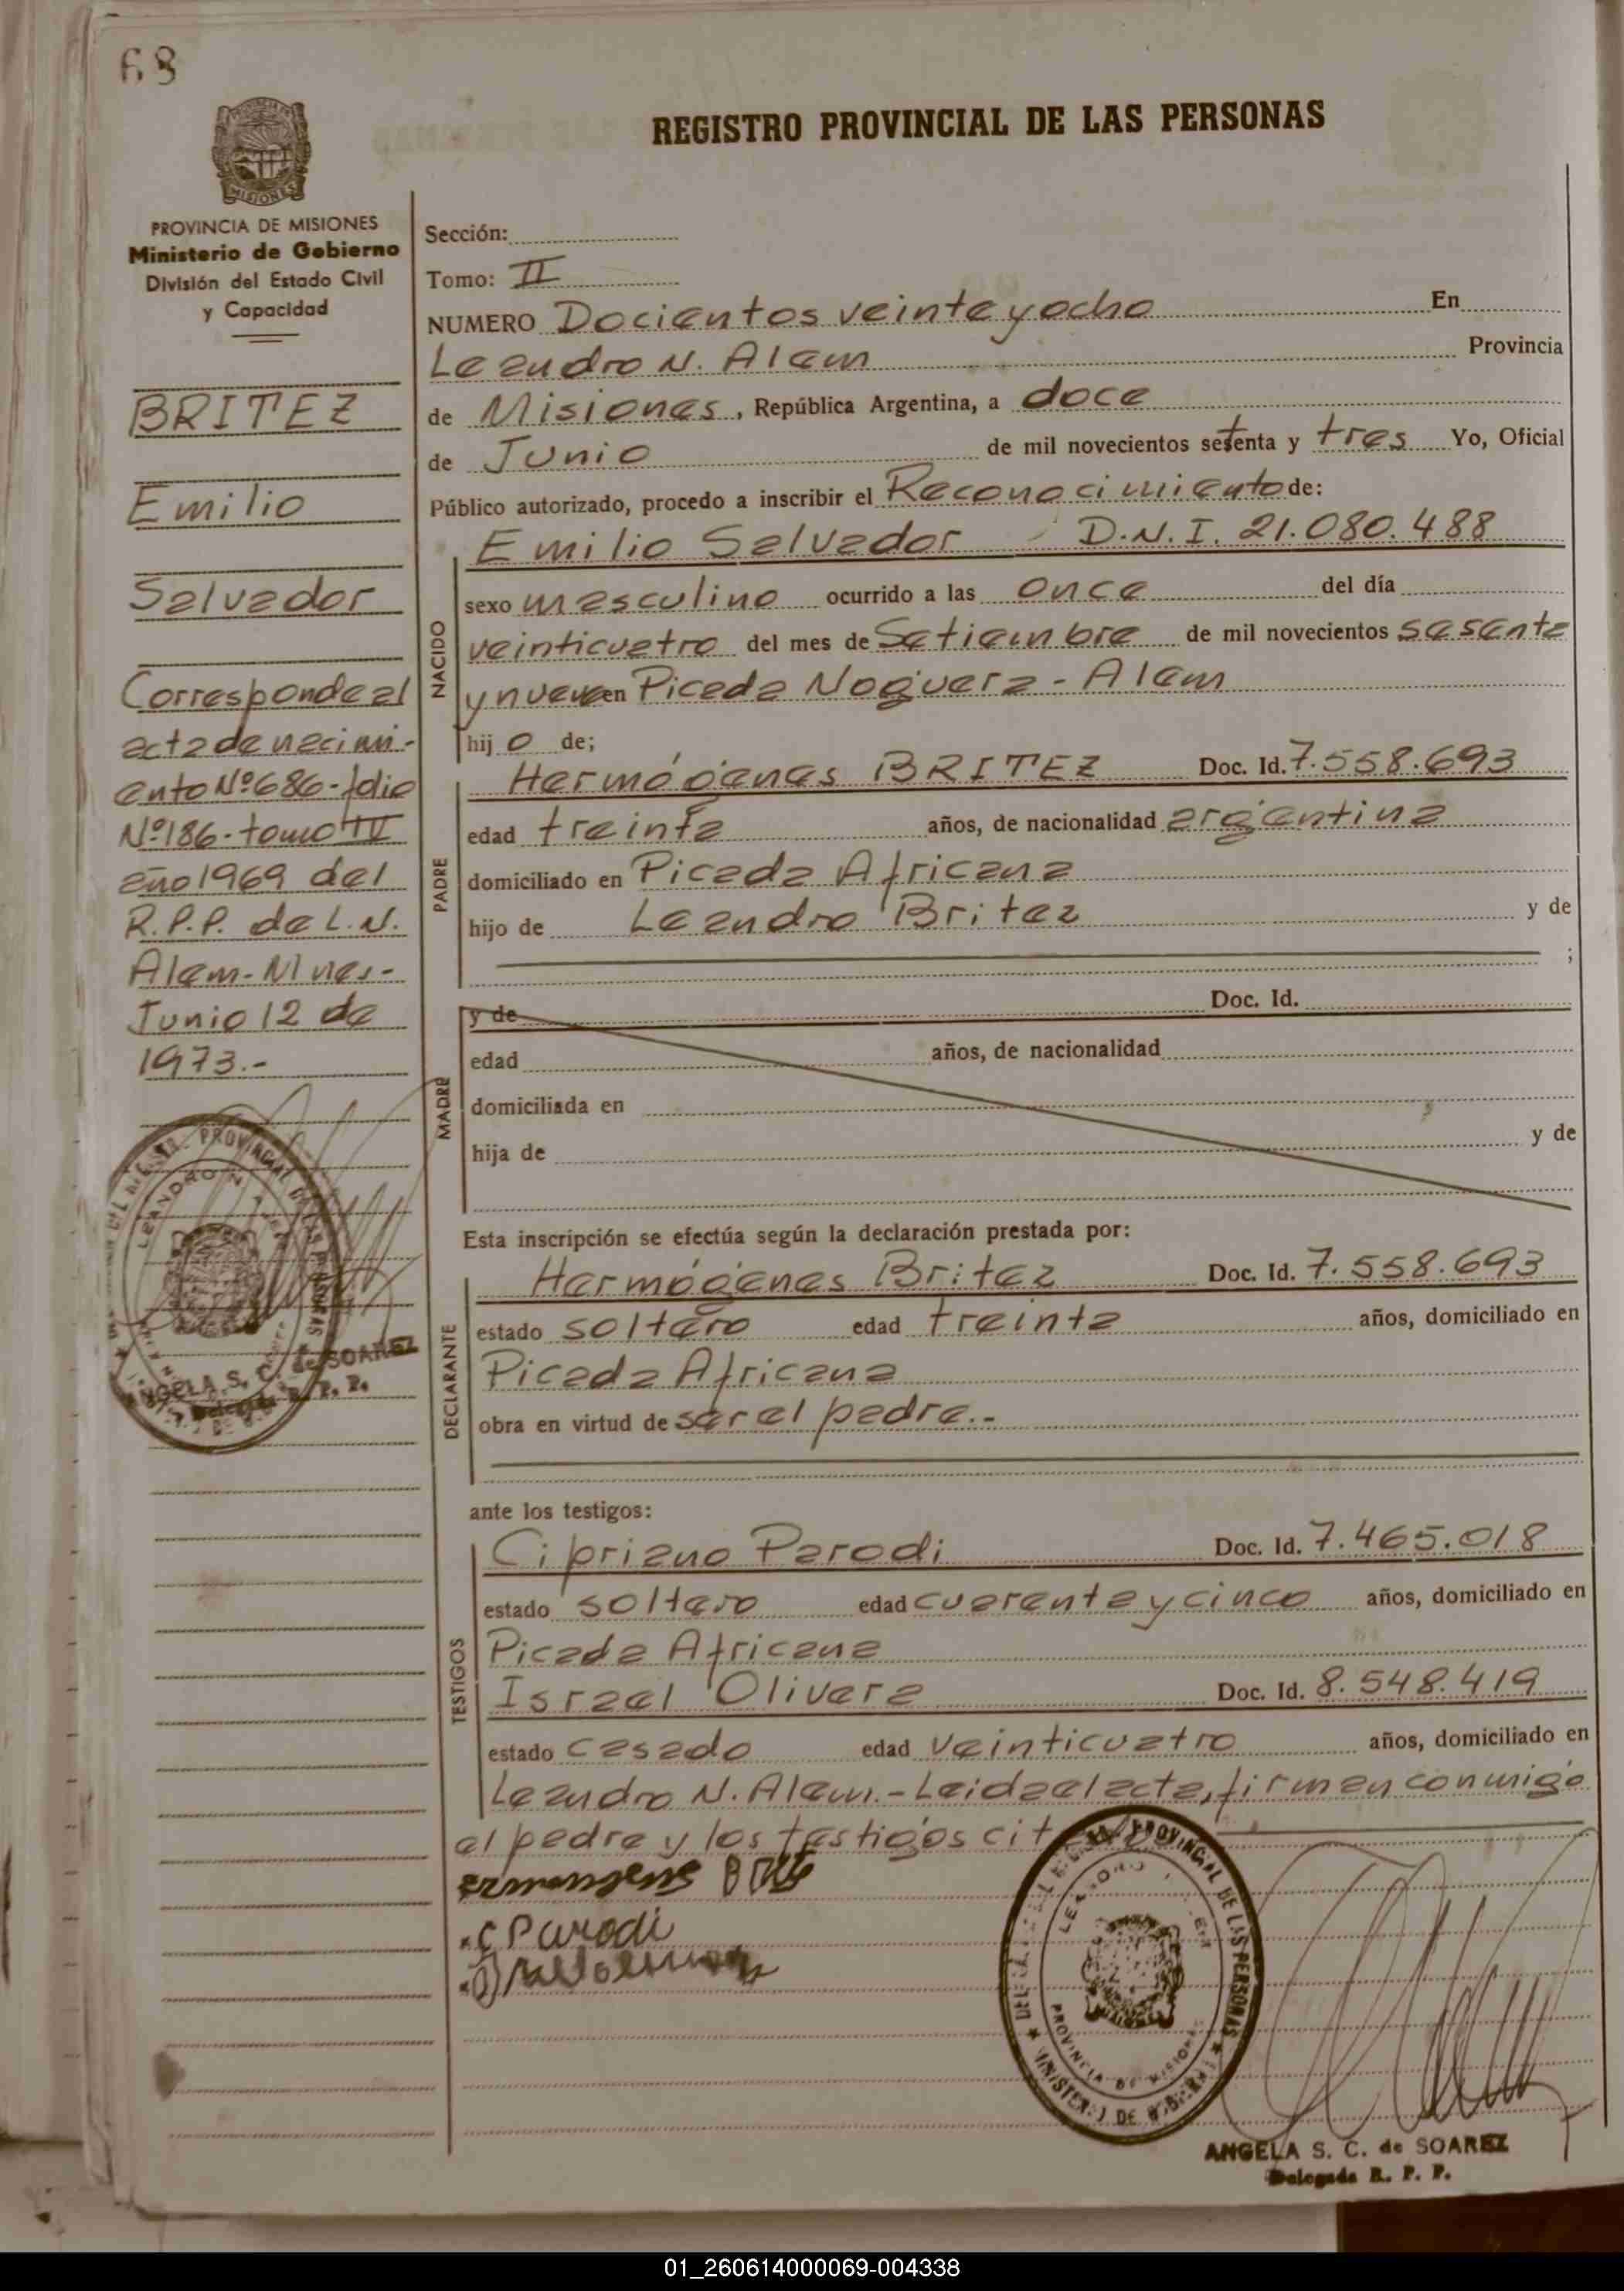 68
PROVINCIA DE MISIONES
Ministerio de Gobierno
División del Estado Civil
y Capacidad
BRITEZ
Emilio
Salvador
Corresponde al
acta de nacimi-
ento Nº 686 - folio
Nº 186 - tomo IV
año 1969 del
R.P.P. de L.N.
Alem - Mnes -
Junio 12 de
1973.-
ANGELA S. C. de SOAREZ
Delegada R. P. P.
REGISTRO PROVINCIAL DE LAS PERSONAS
Sección:
Tomo: II
NUMERO Docientos veinte y ocho En
Leandro N. Alem Provincia
de Misiones, República Argentina, a doce
de Junio de mil novecientos setenta y tres Yo, Oficial
Público autorizado, procedo a inscribir el Reconocimiento de:
NACIDO
Emilio Salvador D.N.I. 21.080.488
sexo masculino ocurrido a las once del día
veinticuatro del mes de Setiembre de mil novecientos sesenta
y nueve en Picada Noguera - Alem
hij o de;
PADRE
Hermógenes BRITEZ Doc. Id. 7.558.693
edad treinta años, de nacionalidad argentina
domiciliado en Picada Africana
hijo de Leandro Britez y de
;
MADRE
y de Doc. Id.
edad años, de nacionalidad
domiciliada en
hija de y de
Esta inscripción se efectúa según la declaración prestada por:
DECLARANTE
Hermógenes Britez Doc. Id. 7.558.693
estado soltero edad treinta años, domiciliado en
Picada Africana
obra en virtud de ser el padre.-
ante los testigos:
TESTIGOS
Cipriano Parodi Doc. Id. 7.465.018
estado soltero edad cuarenta y cinco años, domiciliado en
Picada Africana
Israel Olivera Doc. Id. 8.548.419
estado casado edad veinticuatro años, domiciliado en
Leandro N. Alem.- Leida el acta, firman conmigo
el padre y los testigos cit
C Parodi
PROVINCIAL DE LAS PERSONAS
PROVINCIA DE MISIONES
ANGELA S. C. de SOAREZ
Delegada R. P. P.
01_260614000069-004338